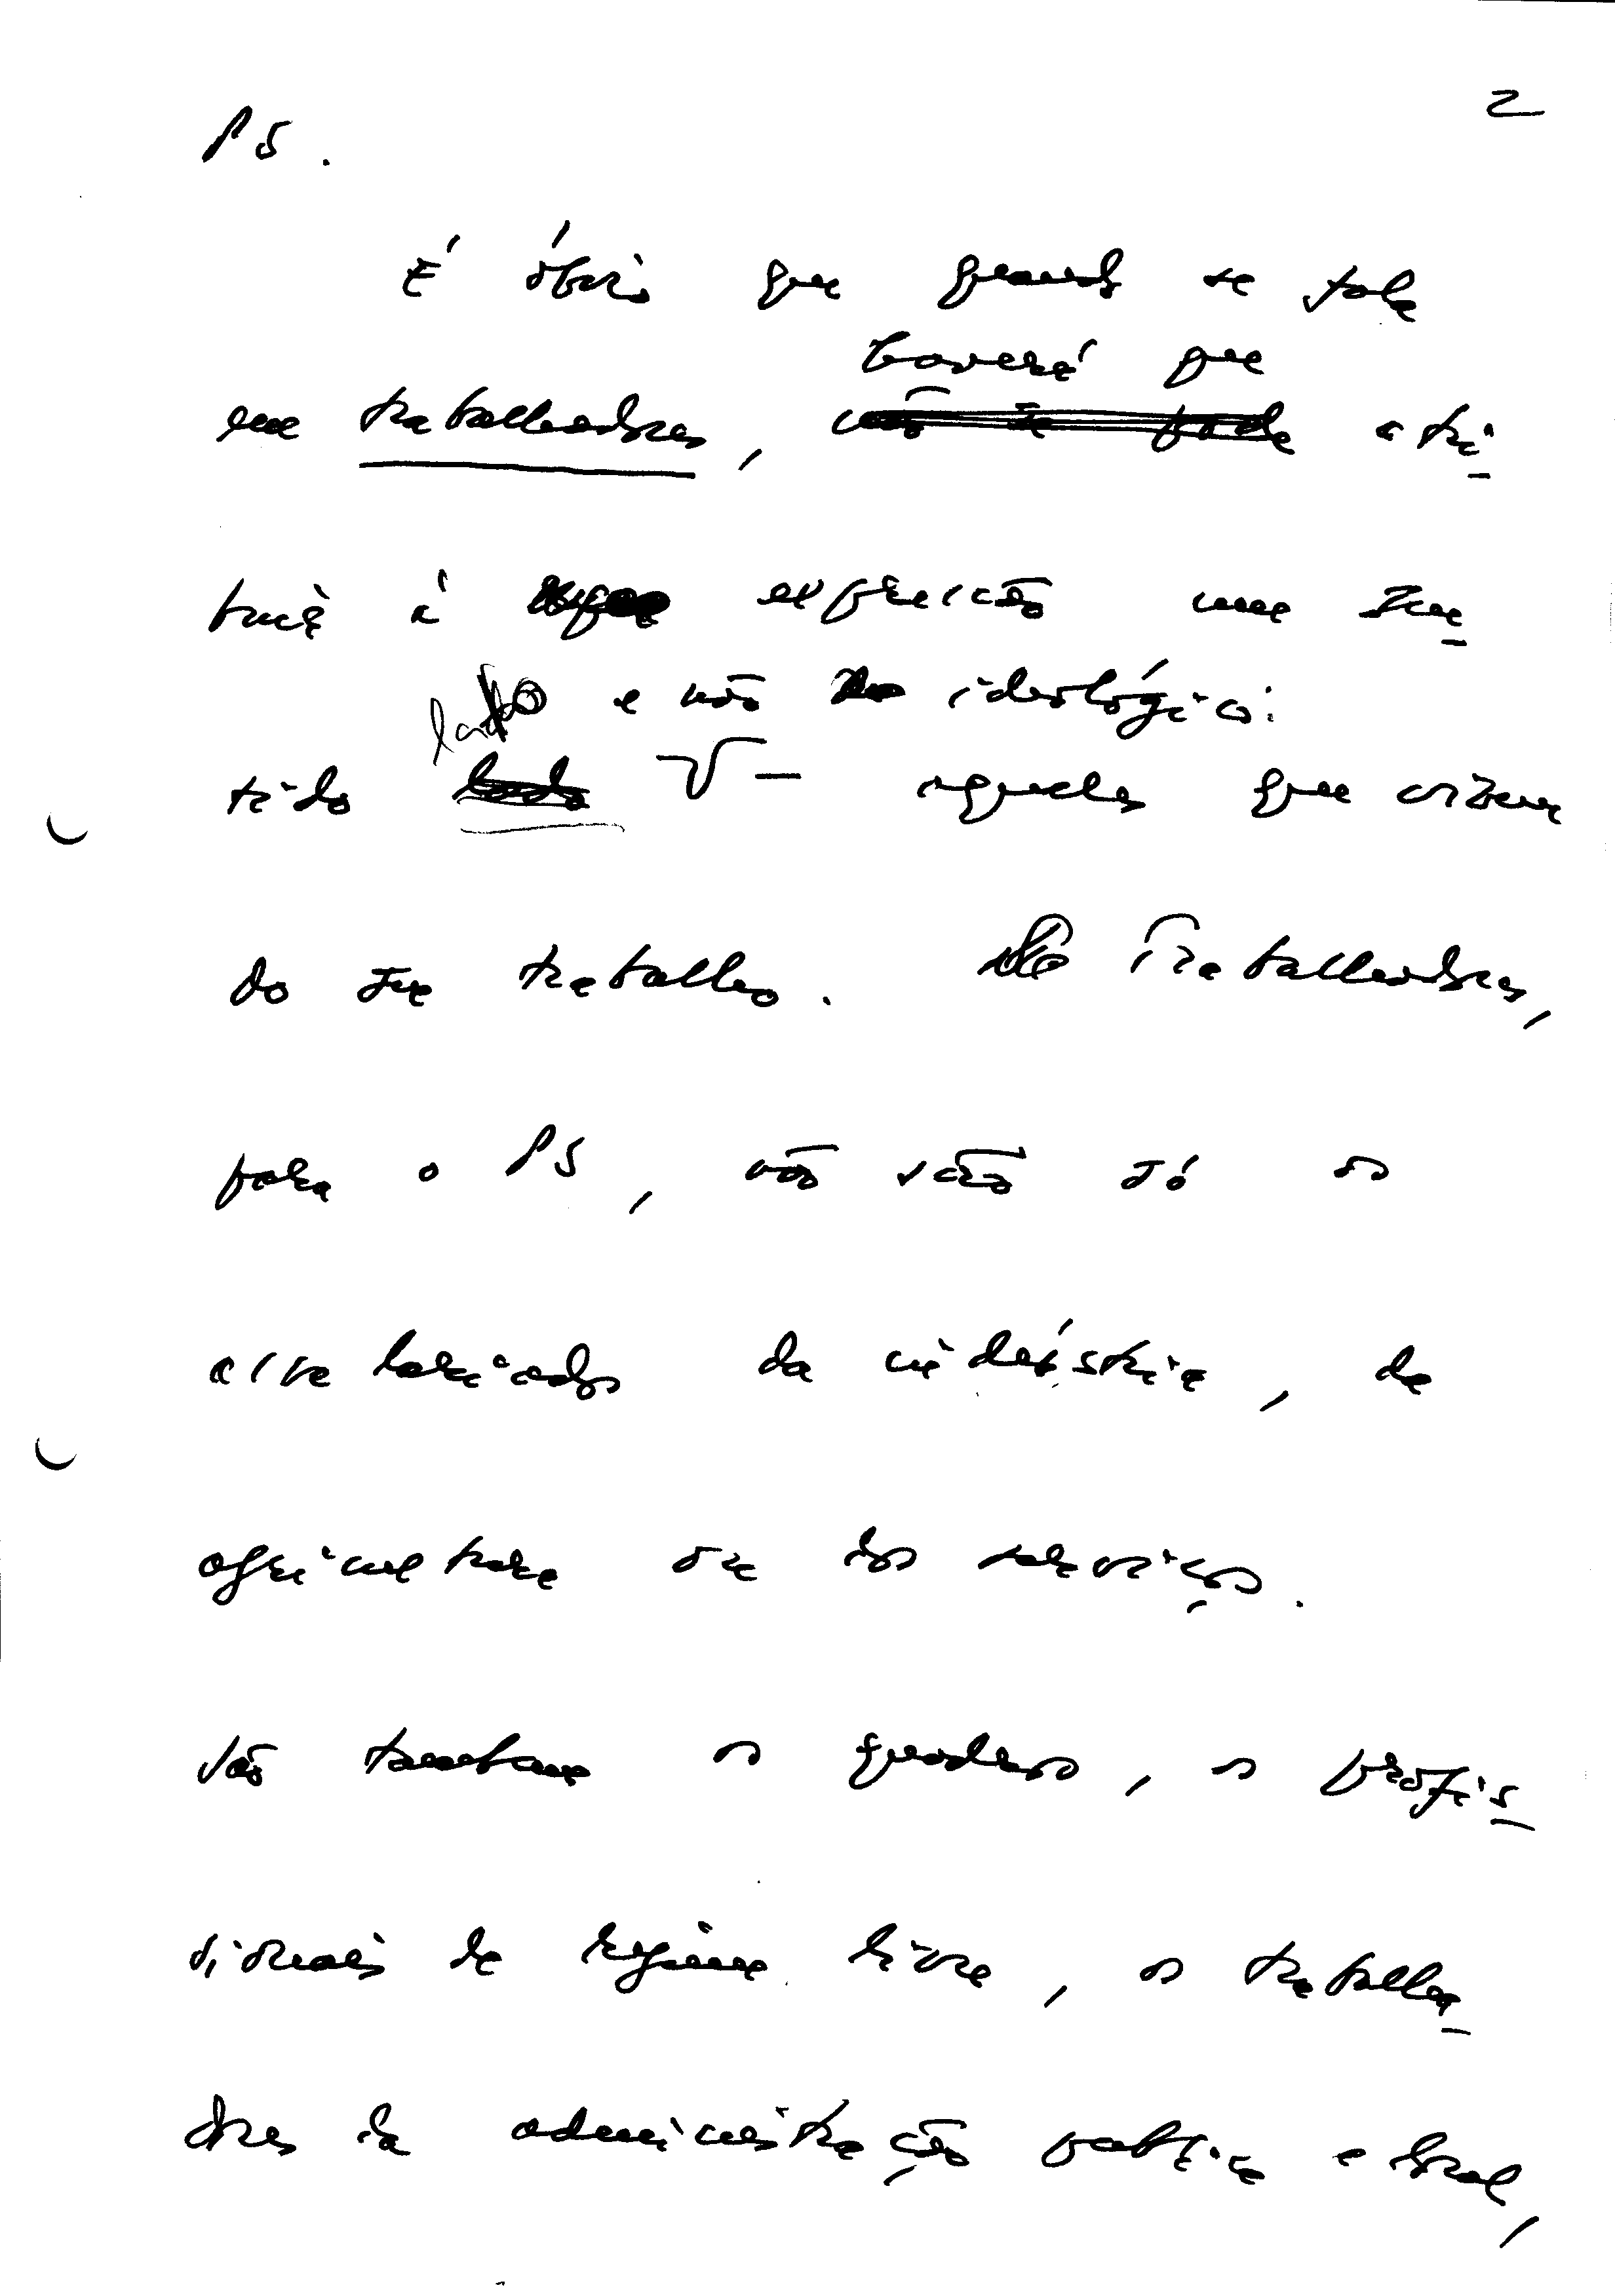 2
PS.
É óbvio que quando se fala
haverá que
em trabalhadores, não se pode atri
buir à expressão um sen
lato e não ideológico:
tido lato — aqueles que vivem
do seu trabalho. Trabalhadores,
para o PS, não são só os
assalariados da indústria, da
agricultura ou dos serviços.
São também os quadros, os profis
sionais de regime livre, os trabalha
dores da administração pública e local,